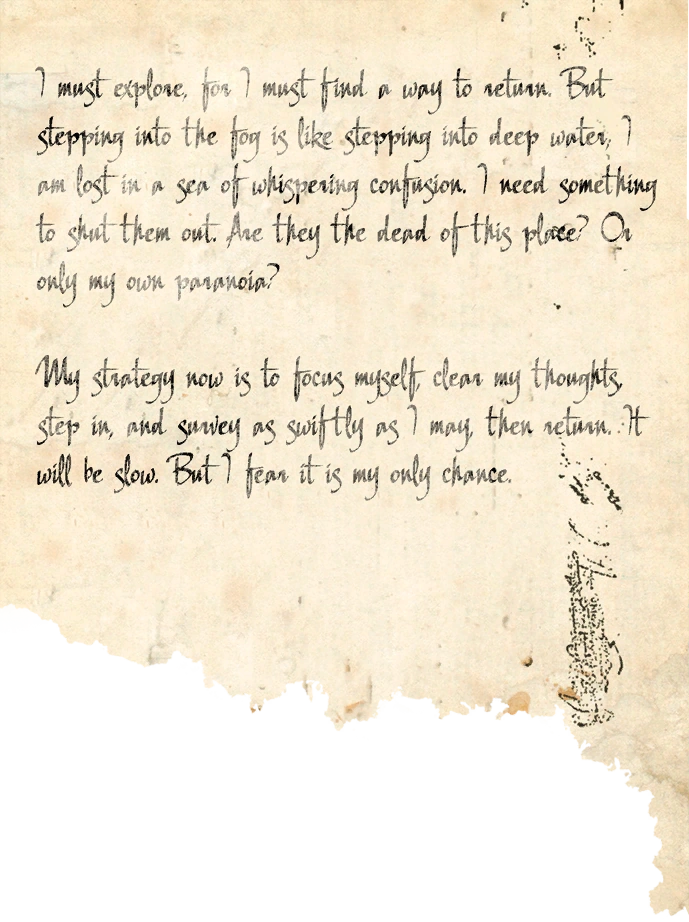 I must explore, for I must find a way to return. But
stepping into the fog is like stepping into deep water, I
am lost in a sea of whispering confusion. I need something
to shut them out. Are they the dead of this place? Or
only my own paranoia?
My strategy now is to focus myself, clear my thoughts,
step in, and survey as swiftly as I may, then return. It
will be slow. But I fear it is my only chance.